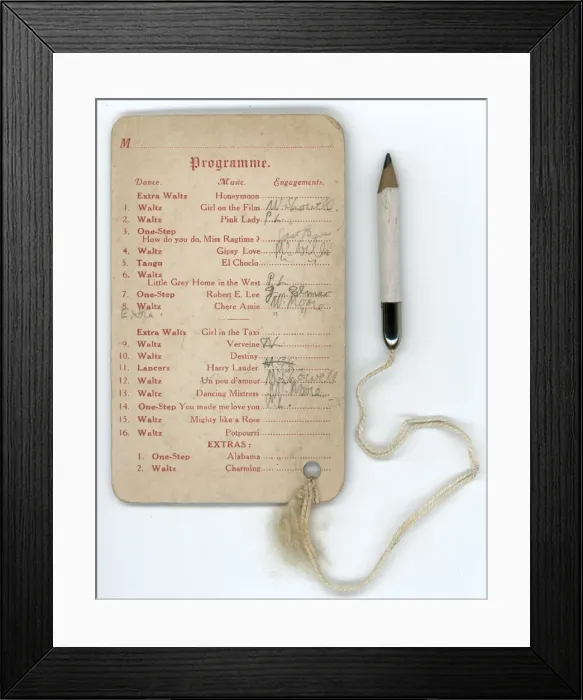 M
Programme.
Dance. Music. Engagements.
Extra Waltz Honeymoon
1. Waltz Girl on the Film
2. Waltz Pink Lady P.L.
3. One-Step
How do you do, Miss Ragtime?
4. Waltz Gipsy Love
5. Tango El Choclo
6. Waltz
Little Grey Home in the West P.L.
7. One-Step Robert E. Lee
8. Waltz Chere Amie W. Moore
Extra
Extra Waltz Girl in the Taxi
9. Waltz Verveine
10. Waltz Destiny
11. Lancers Harry Lauder
12. Waltz Un peu d'amour
13. Waltz Dancing Mistress
14. One-Step You made me love you
15. Waltz Mighty like a Rose
16. Waltz Potpourri
EXTRAS:
1. One-Step Alabama
2. Waltz Charming